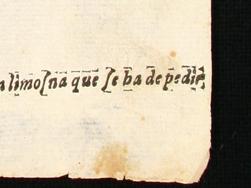 a limoſna que ſe ha de pedir,